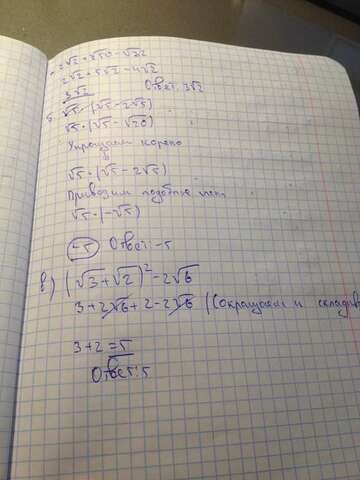 2√2+√50-√32
2√2+5√2-4√2
3√2 Ответ: 3√2
√5·(√5-2√5)
√5·(√5-√20)
Упрощаем корень
√5·(√5-2√5)
Приводим подобные
√5·(-√5)
-5 Ответ: -5
в) (√3+√2)²-2√6
3+2√6+2-2√6 (Сокращаем и складыв
3+2=5
Ответ: 5